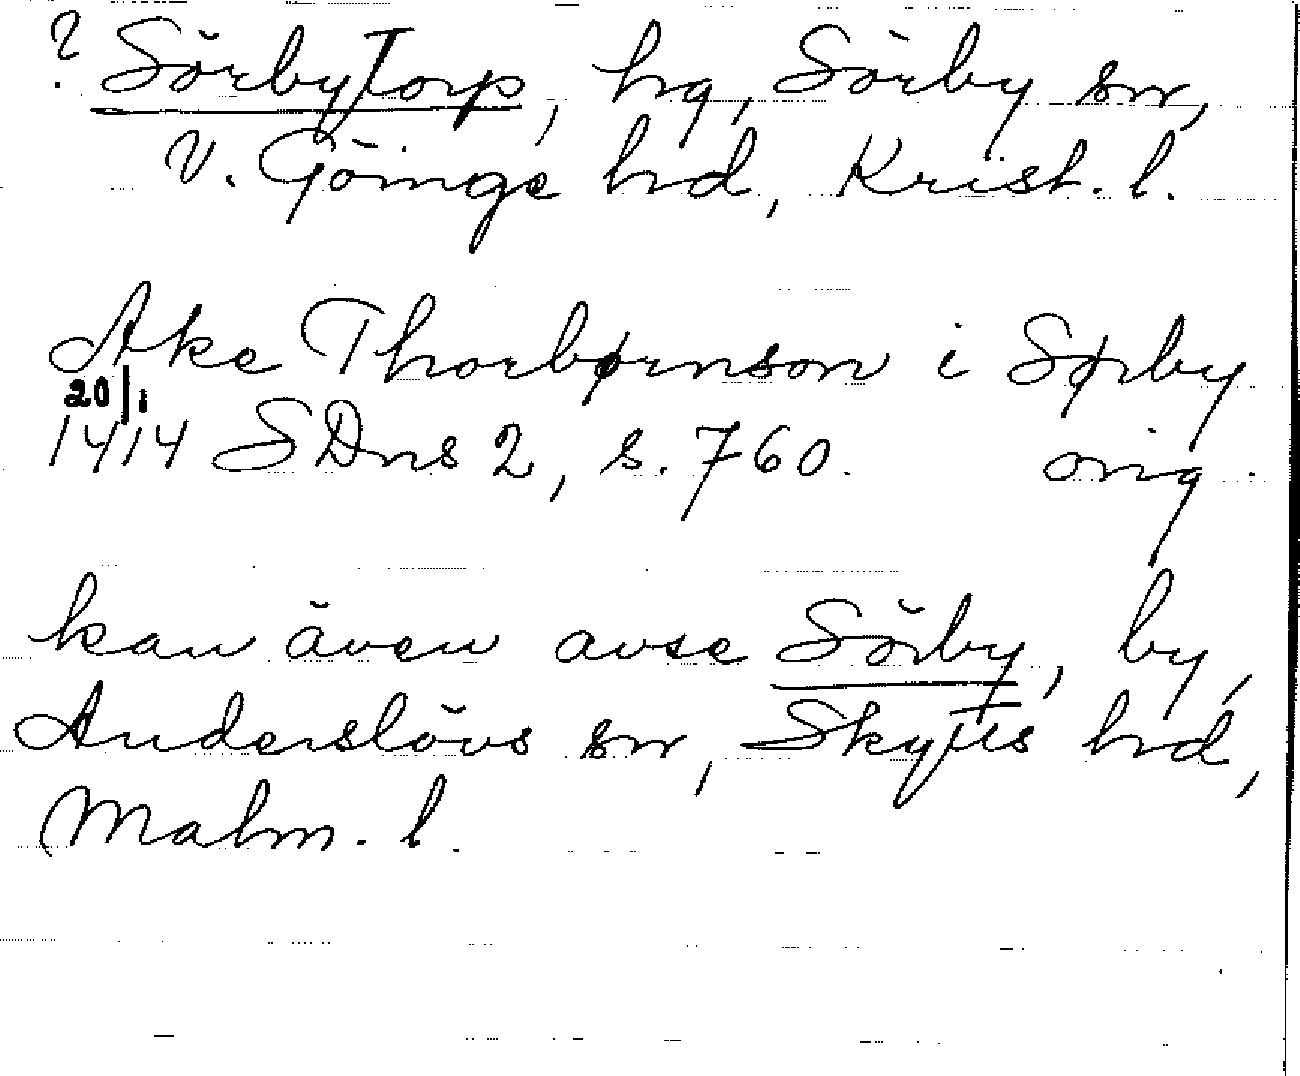 ? Sörbytorp, hg, Sörby sn,
V. Göinge hrd, Krist. l.
Ake Thorbørnson i Sørby
20/1
1414 SDns 2, s. 760. orig.
kan även avse Sörby, by,
Anderslövs sn, Skytts hrd,
Malm. l.